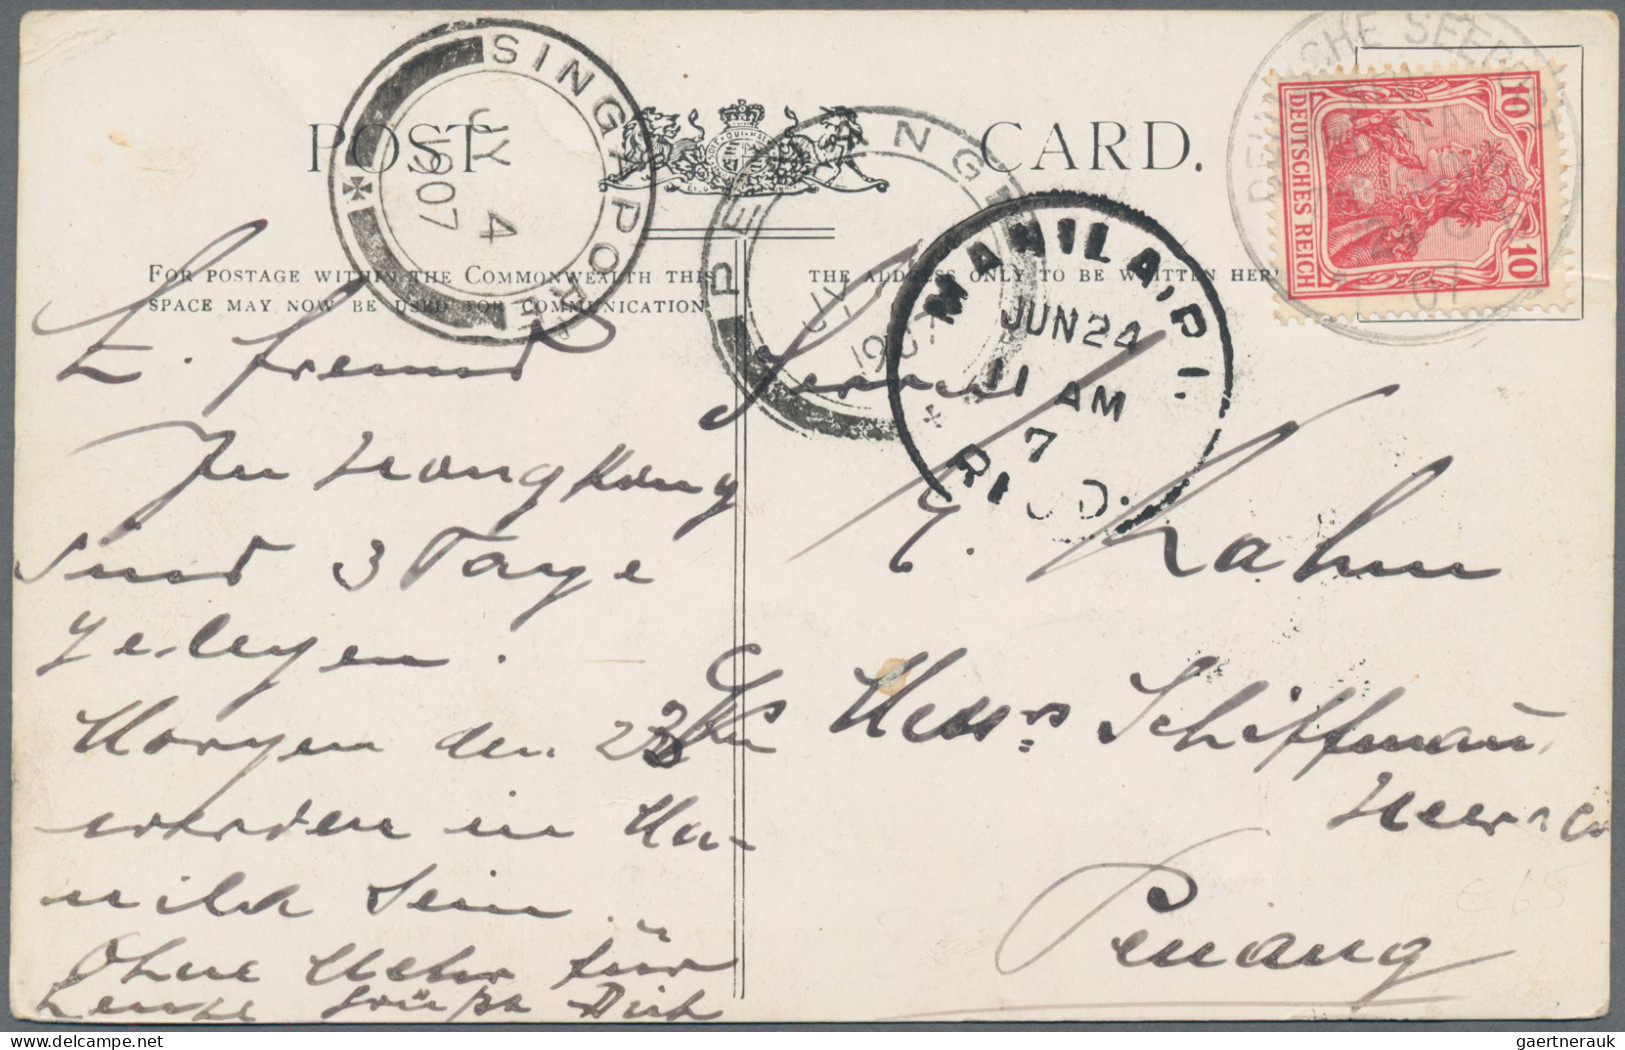 POST CARD.
FOR POSTAGE WITHIN THE COMMONWEALTH THIS
SPACE MAY NOW BE USED FOR COMMUNICATION
THE ADDRESS ONLY TO BE WRITTEN HERE
SINGAPORE
JY 4
1907
PENANG
JY
1907
MANILA, P.I.
JUN 24
11 AM
7
DEUTSCHE SEEPOST
07
10 10
DEUTSCHES REICH
L. freund
In Hongkong
sind 3 Tage
gelegen.
Morgen den 23ten
werden in Ma-
nila sein
Ohne Mehr für
heute grüße Dich
Herrn
Kahn
Messrs Schiffmann,
Heer & Co
Penang
€ 65
gaertnerauk